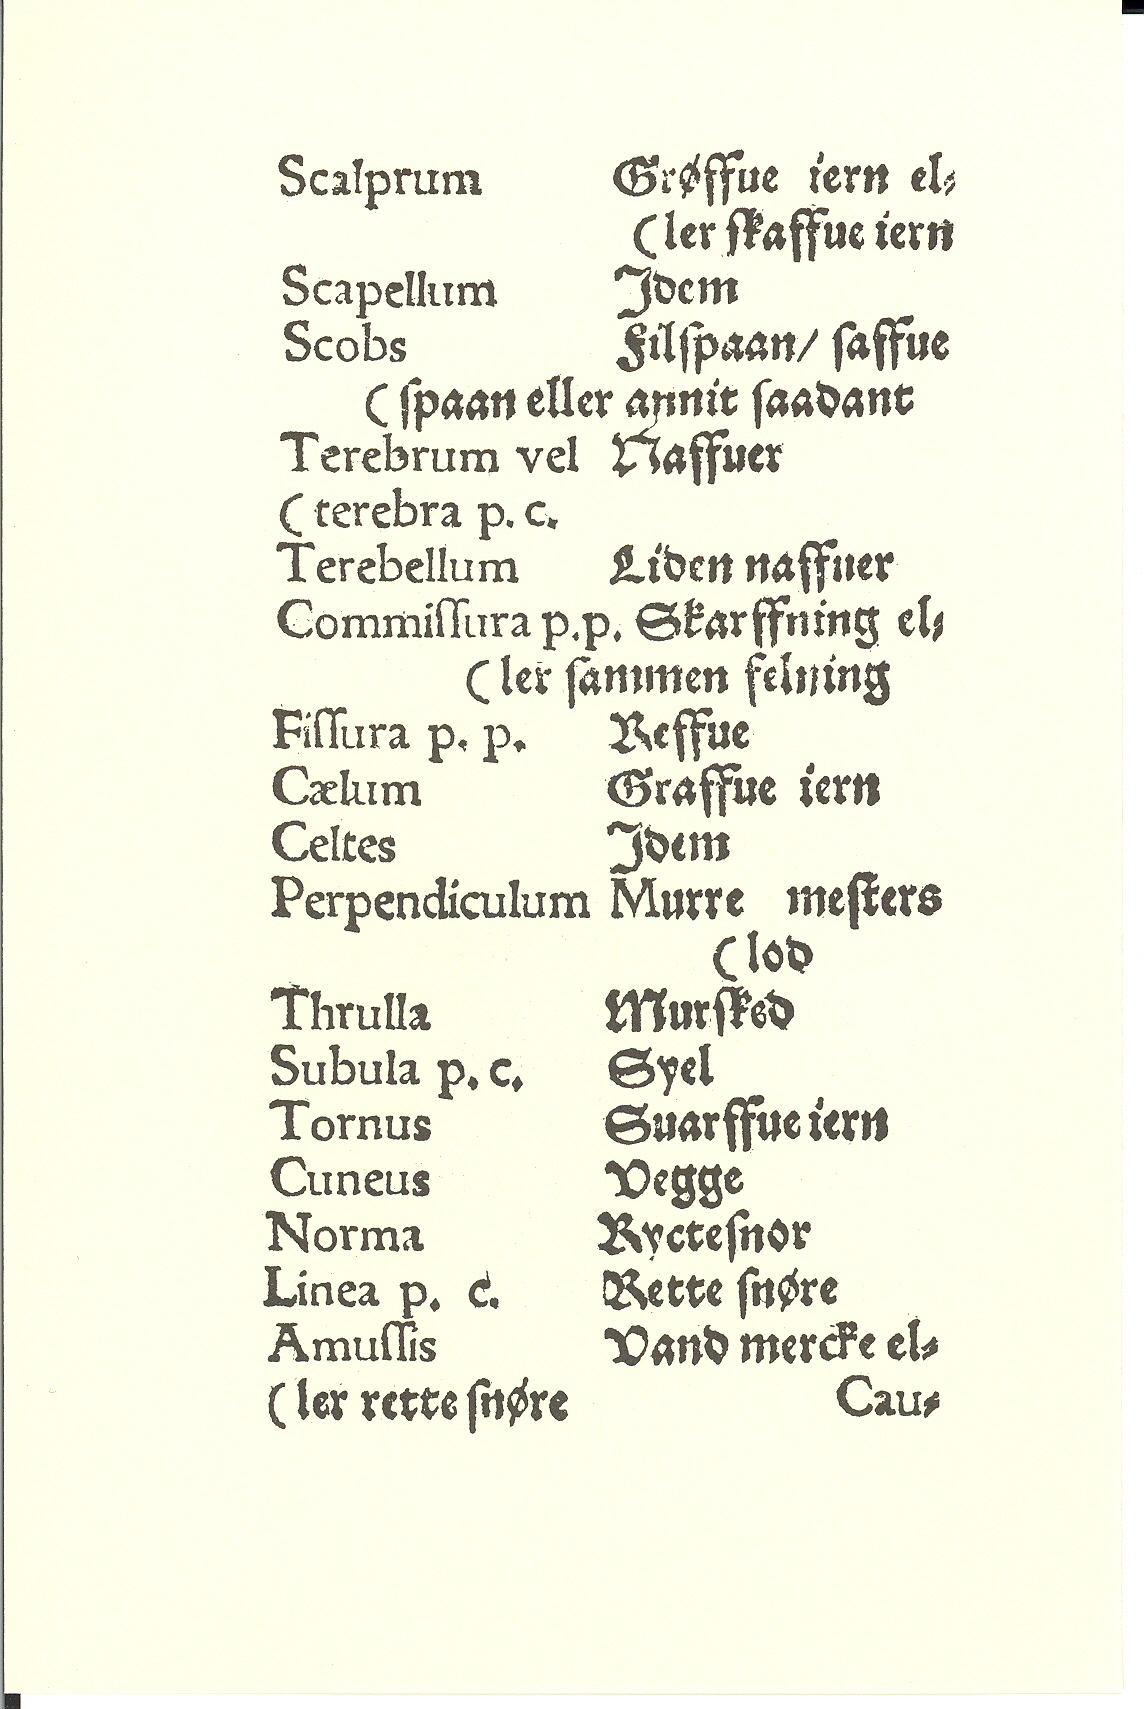 Scalprum Grøffue iern el⸗
(ler ſkaffue iern
Scapellum Jdem
Scobs Filſpaan/ ſaffue
(ſpaan eller annit ſaadant
Terebrum vel Naffuer
(terebra p. c.
Terebellum Liden naffuer
Commiſſura p.p. Skarffning el⸗
(ler ſammen felning
Fiſſura p. p. Reffue
Cælum Graffue iern
Celtes Jdem
Perpendiculum Murre meſters
(lod
Thrulla Murſked
Subula p. c. Syel
Tornus Suarffue iern
Cuneus Vegge
Norma Rycteſnor
Linea p. c. Rette ſnøre
Amuſſis Vand mercke el⸗
(ler rette ſnøre Cau⸗